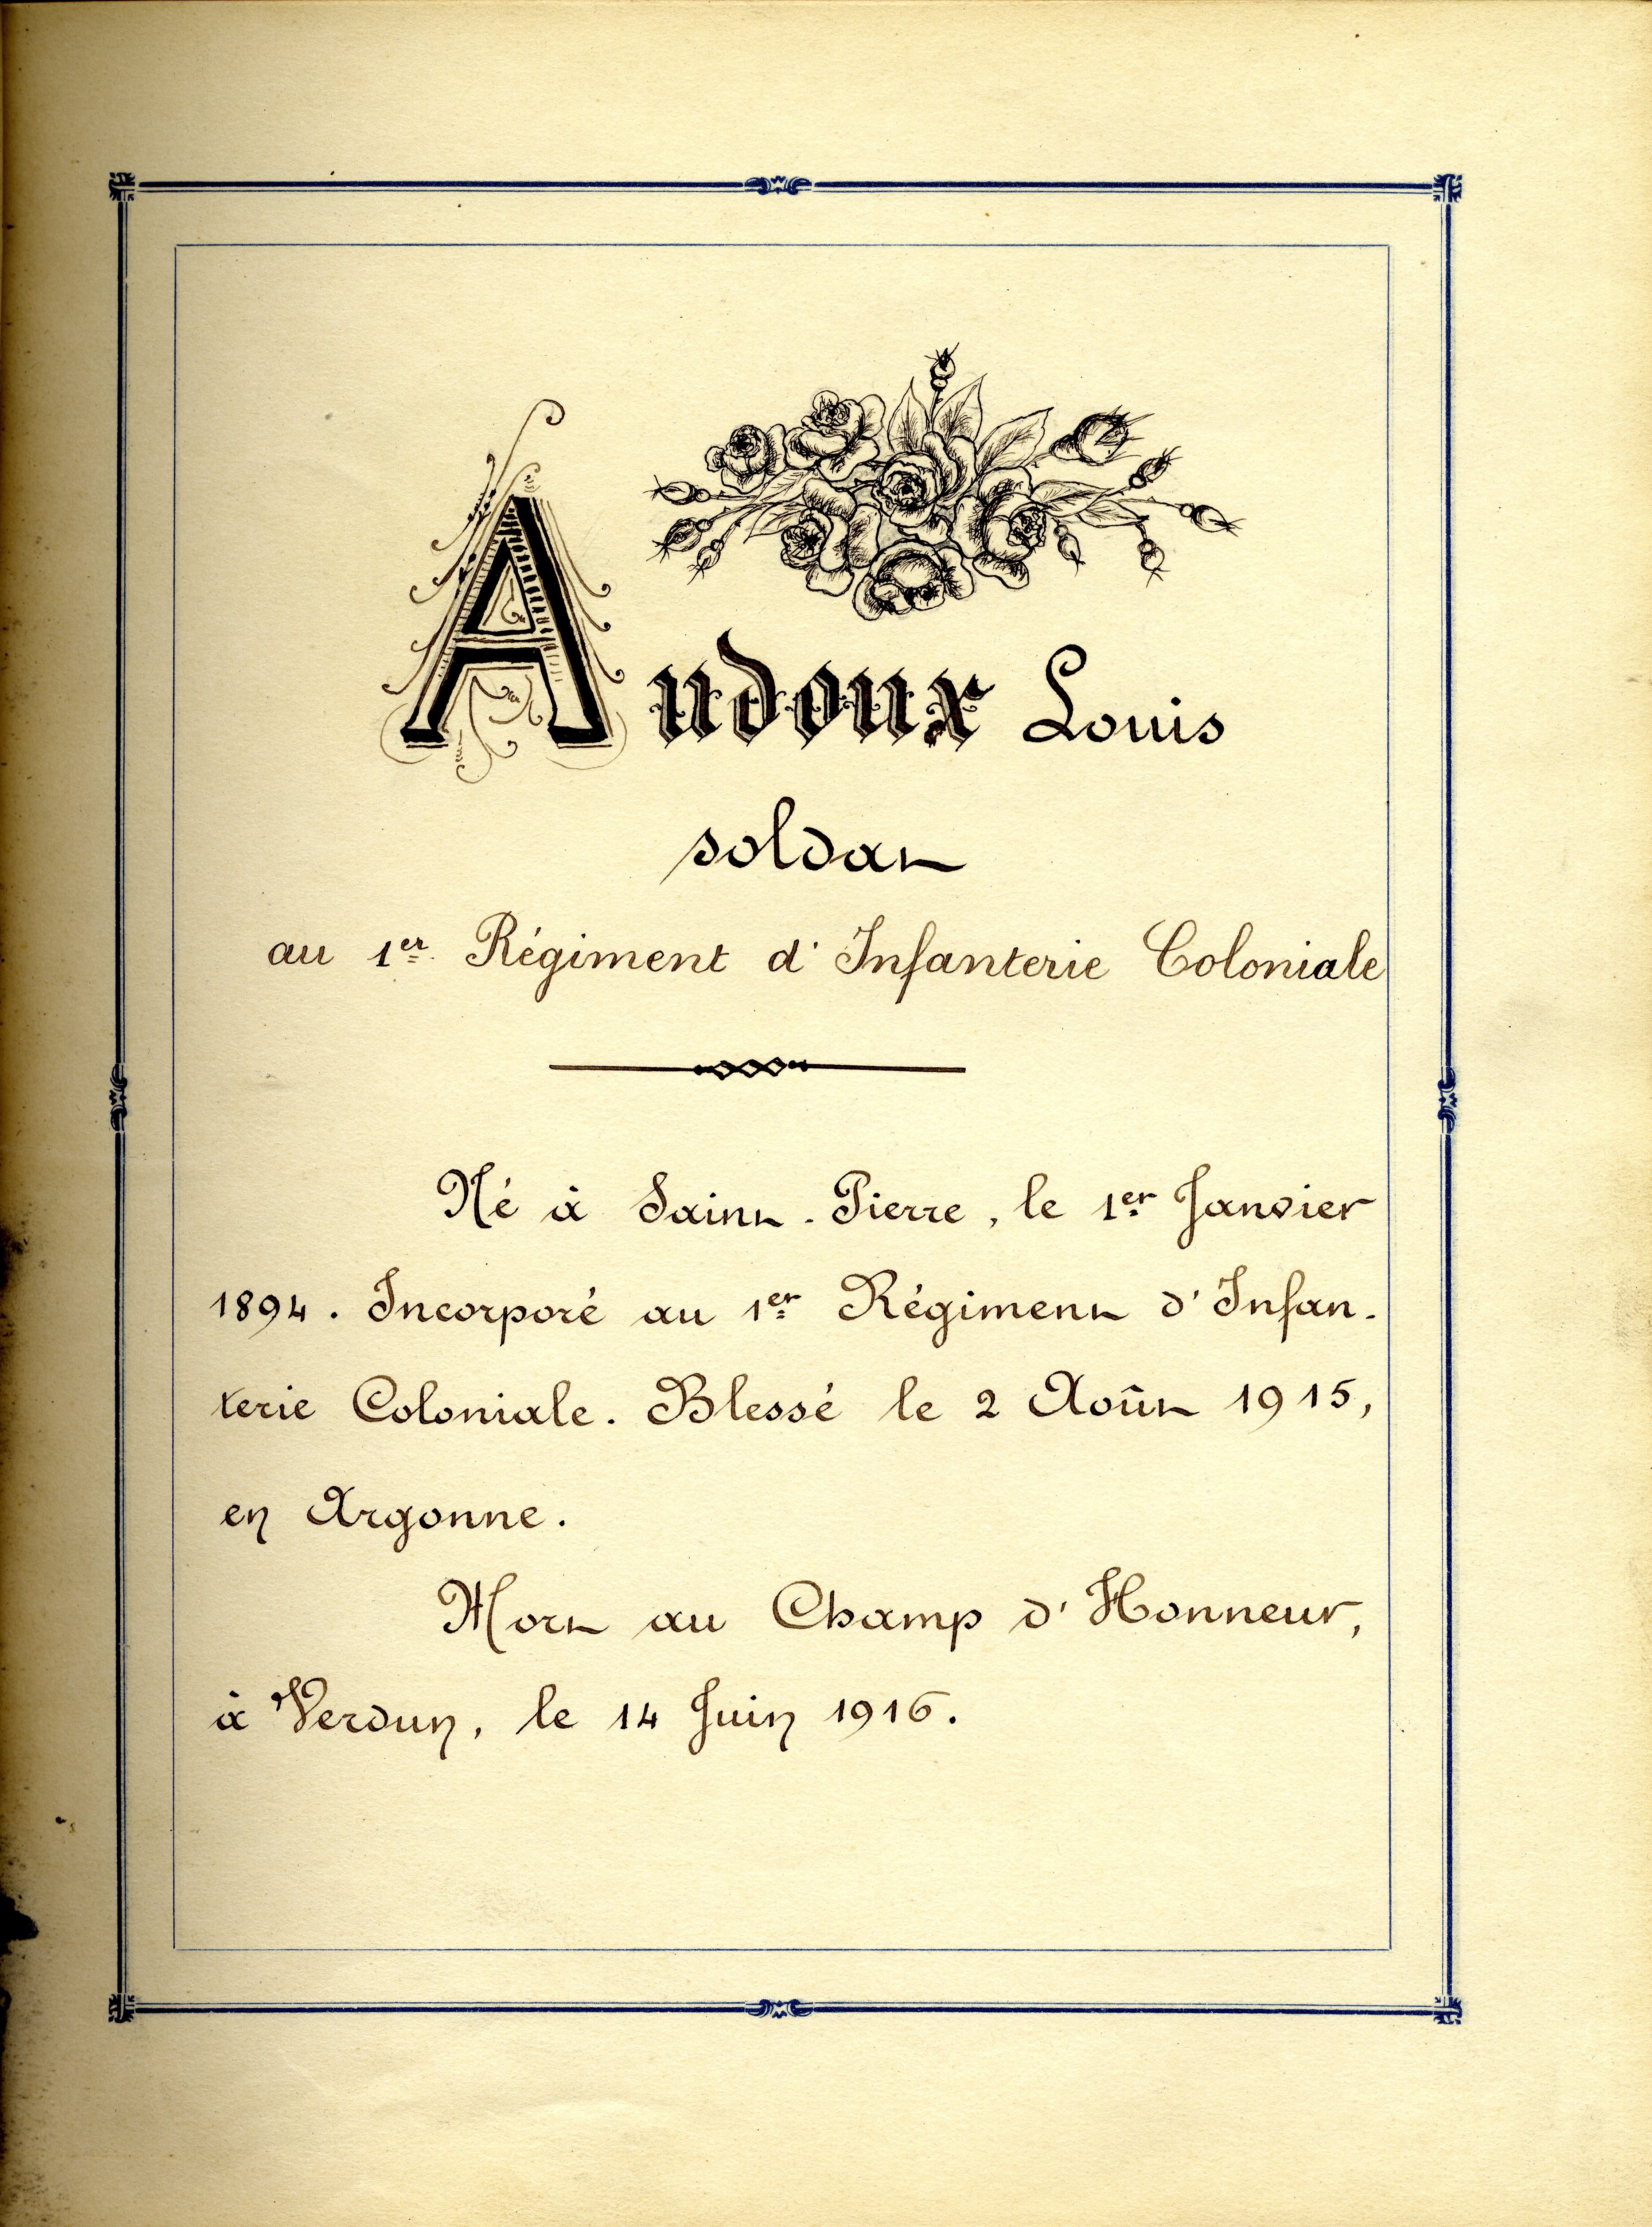 Audoux Louis
soldat
au 1er Régiment d'Infanterie Coloniale
Né à Saint-Pierre, le 1er Janvier
1894. Incorporé au 1er Régiment d'Infan-
terie Coloniale. Blessé le 2 Août 1915,
en Argonne.
Mort au Champ d'Honneur,
à Verdun, le 14 Juin 1916.